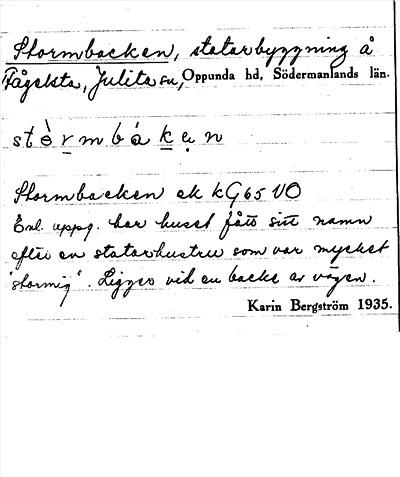 Stormbacken, statarbyggning å
Fågelsta, Julita sn, Oppunda hd, Södermanlands län.
stòrmbákẹn
Stormbacken ek kG65 VO
Enl. uppg. har huset fått sitt namn
efter en statarhustru som var mycket
"stormig". Ligger vid en backe av vägen.
Karin Bergström 1935.